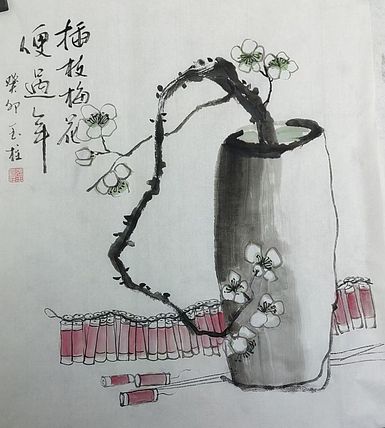 插枝梅花
便過年
癸卯玉柱